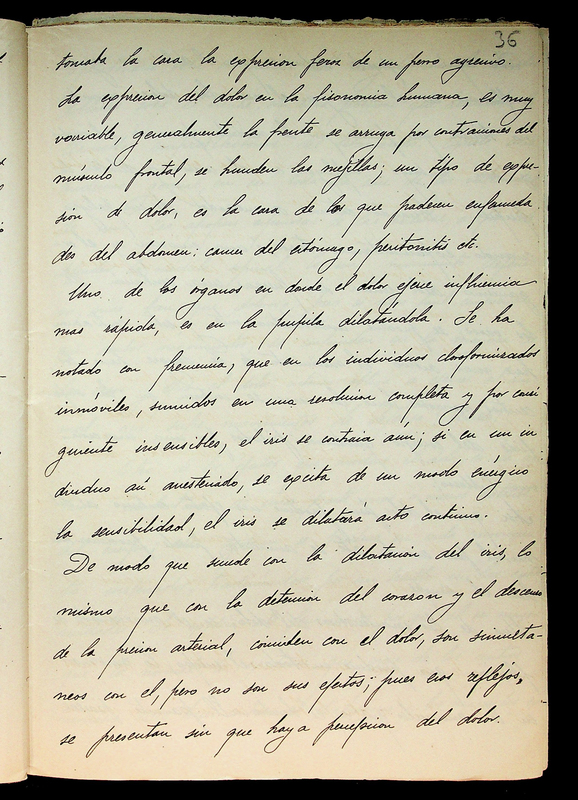 36
tomaba la cara la expresion feroz de un perro agresivo.
La expresion del dolor en la fisonomia humana, es muy
variable, generalmente la frente se arruga por contracciones del
músculo frontal, se hunden las mejillas; un tipo de expre-
sion de dolor, es la cara de los que padecen enfermeda
des del abdomen: cancer del estómago, peritonitis etc.
Uno de los órganos en donde el dolor ejerce influencia
mas rápida, es en la pupila dilatándola. Se ha
notado con frecuencia, que en los individuos cloroformizados
inmóviles, sumidos en una resolucion completa y por consi-
guiente insensibles, el iris se contraia aún; si en un in
dividuo asi anestesiado, se excita de un modo enérgico
la sensibilidad, el iris se dilatará acto continuo.
De modo que sucede con la dilatacion del iris, lo
mismo que con la detencion del corazon y el descenso
de la presion arterial, coinciden con el dolor, son simulta-
neos con el, pero no son sus efectos; pues esos reflejos,
se presentan sin que haya percepcion del dolor.